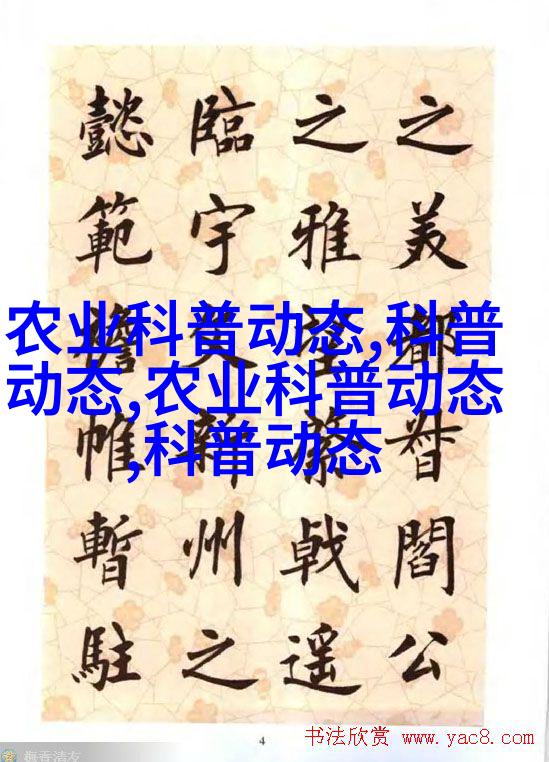 之美都督閻公
之雅望棨戟遥
臨宇文新州之
懿範襜帷暫駐
农业科普动态,科普
动态,农业科普动态
,科普动态
4
书法欣赏 www.yac8.com
梅香清友